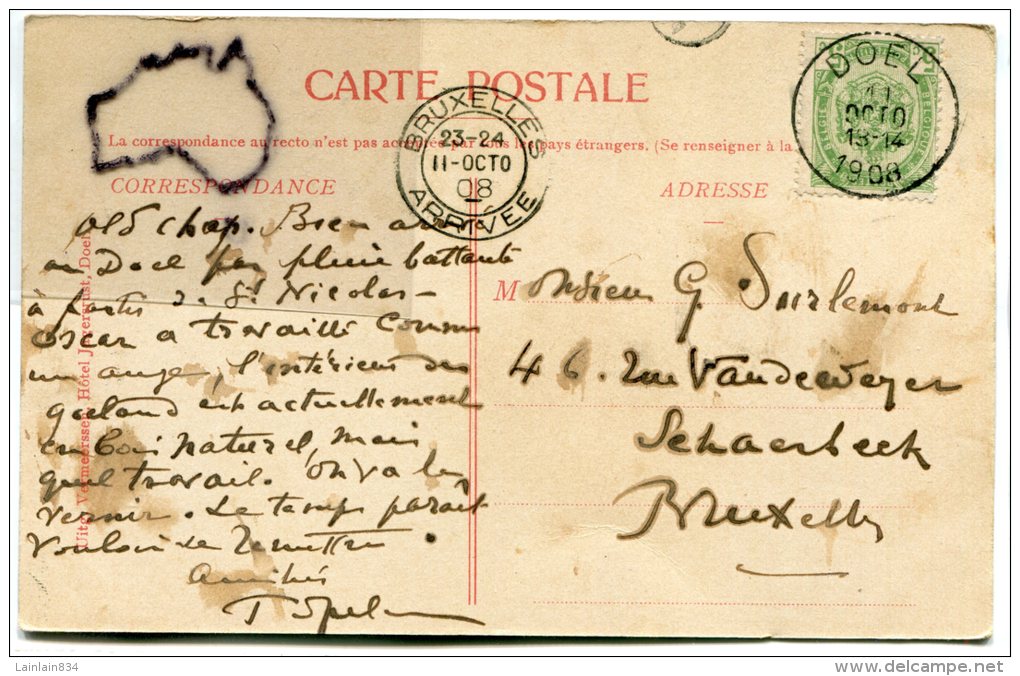 CARTE POSTALE
La correspondance au recto n'est pas acceptée par tous les pays étrangers. (Se renseigner à la
CORRESPONDANCE
ADRESSE
BRUXELLES
23-24
11-OCTO
08
ARRIVÉE
DOEL
11
OCTO
13-14
1908
old chap. Bien
au Doel par pluie battante
à partir de St Nicolas -
Oscar a travaillé comme
un ange, l'intérieur du
goeland est actuellement
en bois naturel, mais
quel travail. On va le
vernir. Le temps paraît
vouloir se remettre.
Amitiés
M onsieur G. Surlemont
46. rue Vandeweyer
Schaerbeek
Bruxelles
Uitg. Vermeerssen, Hôtel Jagersrust, Doel
Lainlain834
delcampe.net